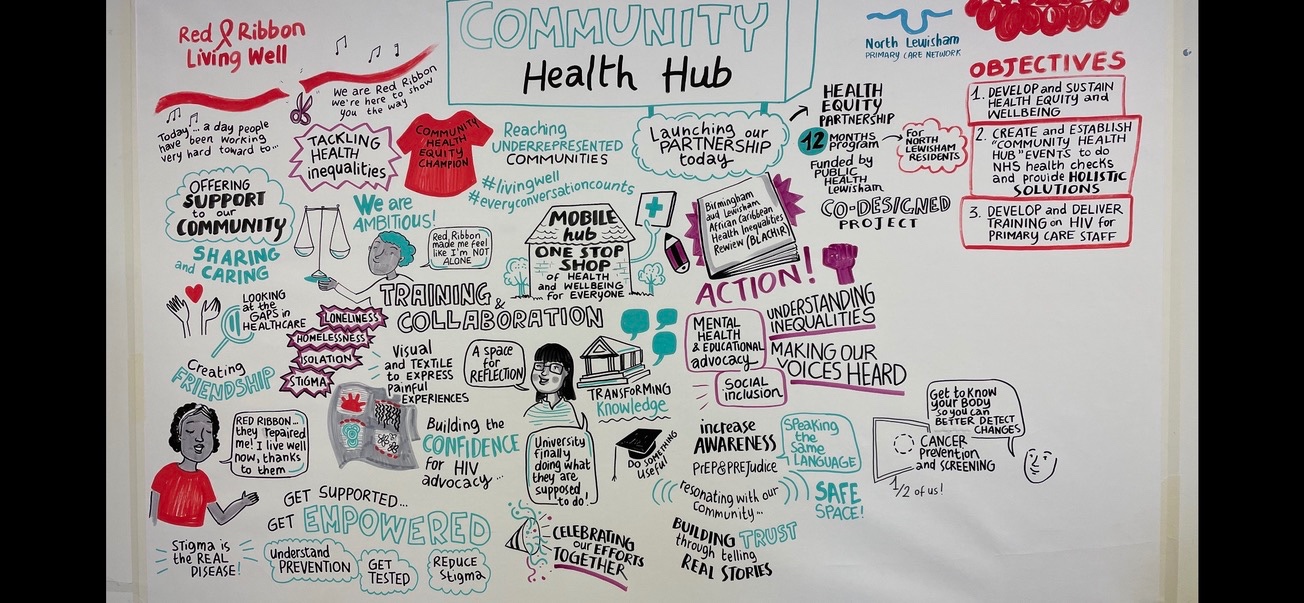 Red Ribbon
Living Well
We are Red Ribbon
we're here to show
you the way
Today... a day people
have been working
very hard toward to...
COMMUNITY
Health Hub
North Lewisham
PRIMARY CARE NETWORK
OBJECTIVES
1. DEVELOP and SUSTAIN
HEALTH EQUITY and
WELLBEING
2. CREATE and ESTABLISH
"COMMUNITY HEALTH
HUB" EVENTS to do
NHS health checks
and provide HOLISTIC
SOLUTIONS
3. DEVELOP and DELIVER
TRAINING on HIV for
PRIMARY CARE STAFF
TACKLING
HEALTH
inequalities
COMMUNITY
HEALTH
EQUITY
CHAMPION
Reaching
UNDERREPRESENTED
COMMUNITIES
#livingwell
#everyconversationcounts
Launching our
PARTNERSHIP
today
HEALTH
EQUITY
PARTNERSHIP
12 MONTHS
program
For
NORTH
LEWISHAM
RESIDENTS
Funded by
PUBLIC
HEALTH
Lewisham
CO-DESIGNED
PROJECT
OFFERING
SUPPORT
to our
COMMUNITY
SHARING
and CARING
We are
AMBITIOUS!
Red Ribbon
made me feel
like I'm NOT
ALONE
MOBILE
hub
ONE STOP
SHOP
of HEALTH
and WELLBEING
for EVERYONE
Birmingham
and Lewisham
African Caribbean
Health Inequalities
Rewiew (BLACHIR)
ACTION!
LOOKING
at the
GAPS in
HEALTHCARE
TRAINING &
COLLABORATION
LONELINESS
HOMELESSNESS
ISOLATION
STIGMA
Creating
FRIENDSHIP
Visual
and TEXTILE
to EXPRESS
painful
EXPERIENCES
A space
for
REFLECTION
TRANSFORMING
Knowledge
MENTAL
HEALTH
& EDUCATIONAL
advocacy
UNDERSTANDING
INEQUALITIES
MAKING OUR
VOICES HEARD
SOCIAL
inclusion
RED RIBBON...
they repaired
me! I live well
now, thanks
to them
Building the
CONFIDENCE
for HIV
advocacy...
University
finally
doing what
they are
supposed
to do!
DO SOMETHING
useful!
increase
AWARENESS
PrEP&PREJudice
SPEAKING
the
SAME
LANGUAGE
resonating with our
community...
SAFE
SPACE!
Get to know
your BODY
so you can
BETTER DETECT
CHANGES
CANCER
Prevention
and SCREENING
1/2 of us!
GET SUPPORTED...
GET EMPOWERED
Stigma is
the REAL
DISEASE!
Understand
PREVENTION
GET
TESTED
REDUCE
Stigma
CELEBRATING
our EFFORTS
TOGETHER
BUILDING TRUST
through telling
REAL STORIES